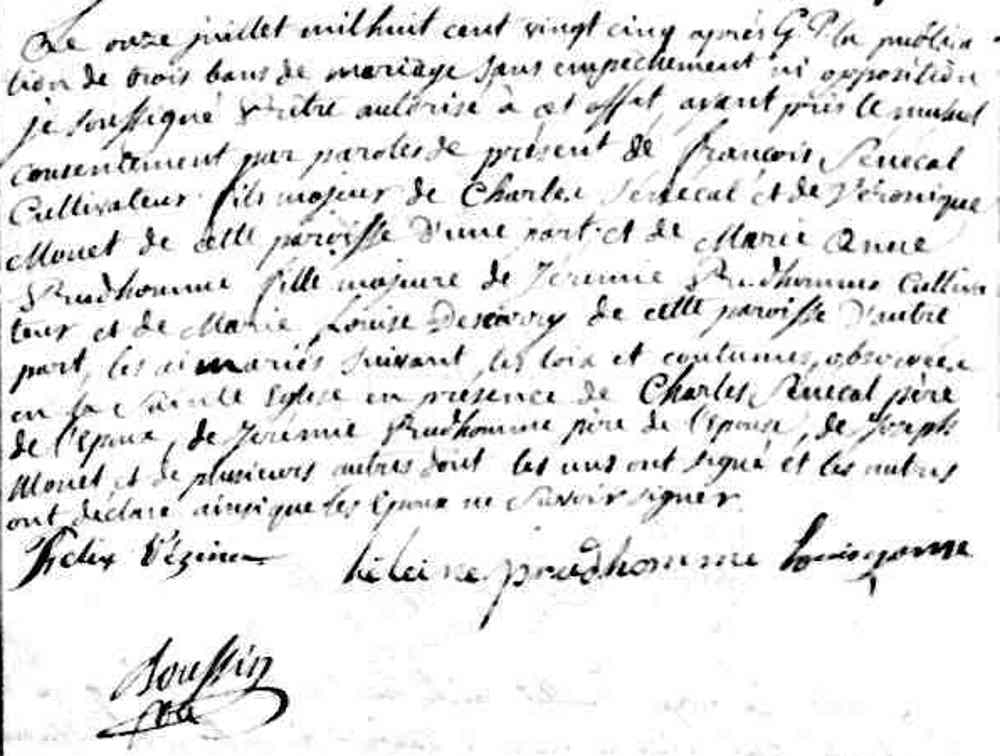 Le onze juillet mil huit cent vingt cinq après la publica
tion de trois bans de mariage sans empêchement ni opposition
je soussigné Prêtre autorisé à cet effet, ayant pris le mutuel
consentement par paroles de présent de François Senecal
Cultivateur fils majeur de Charles Senecal et de Véronique
Monet de cette paroisse d'une part et de Marie Anne
Prudhomme fille majeure de Jérémie Prudhomme Cultiva
teur et de Marie Louise de cette paroisse d'autre
part, les ai mariés suivant les loix et coutumes observées
en la Sainte Eglise en présence de Charles Senecal père
de l'époux, de Jérémie Prudhomme père de l'épouse, de Joseph
Monet et de plusieurs autres dont les uns ont signé et les autres
ont déclaré ainsi que les Epoux ne savoir signer
Felix Vézina héleine prudhomme